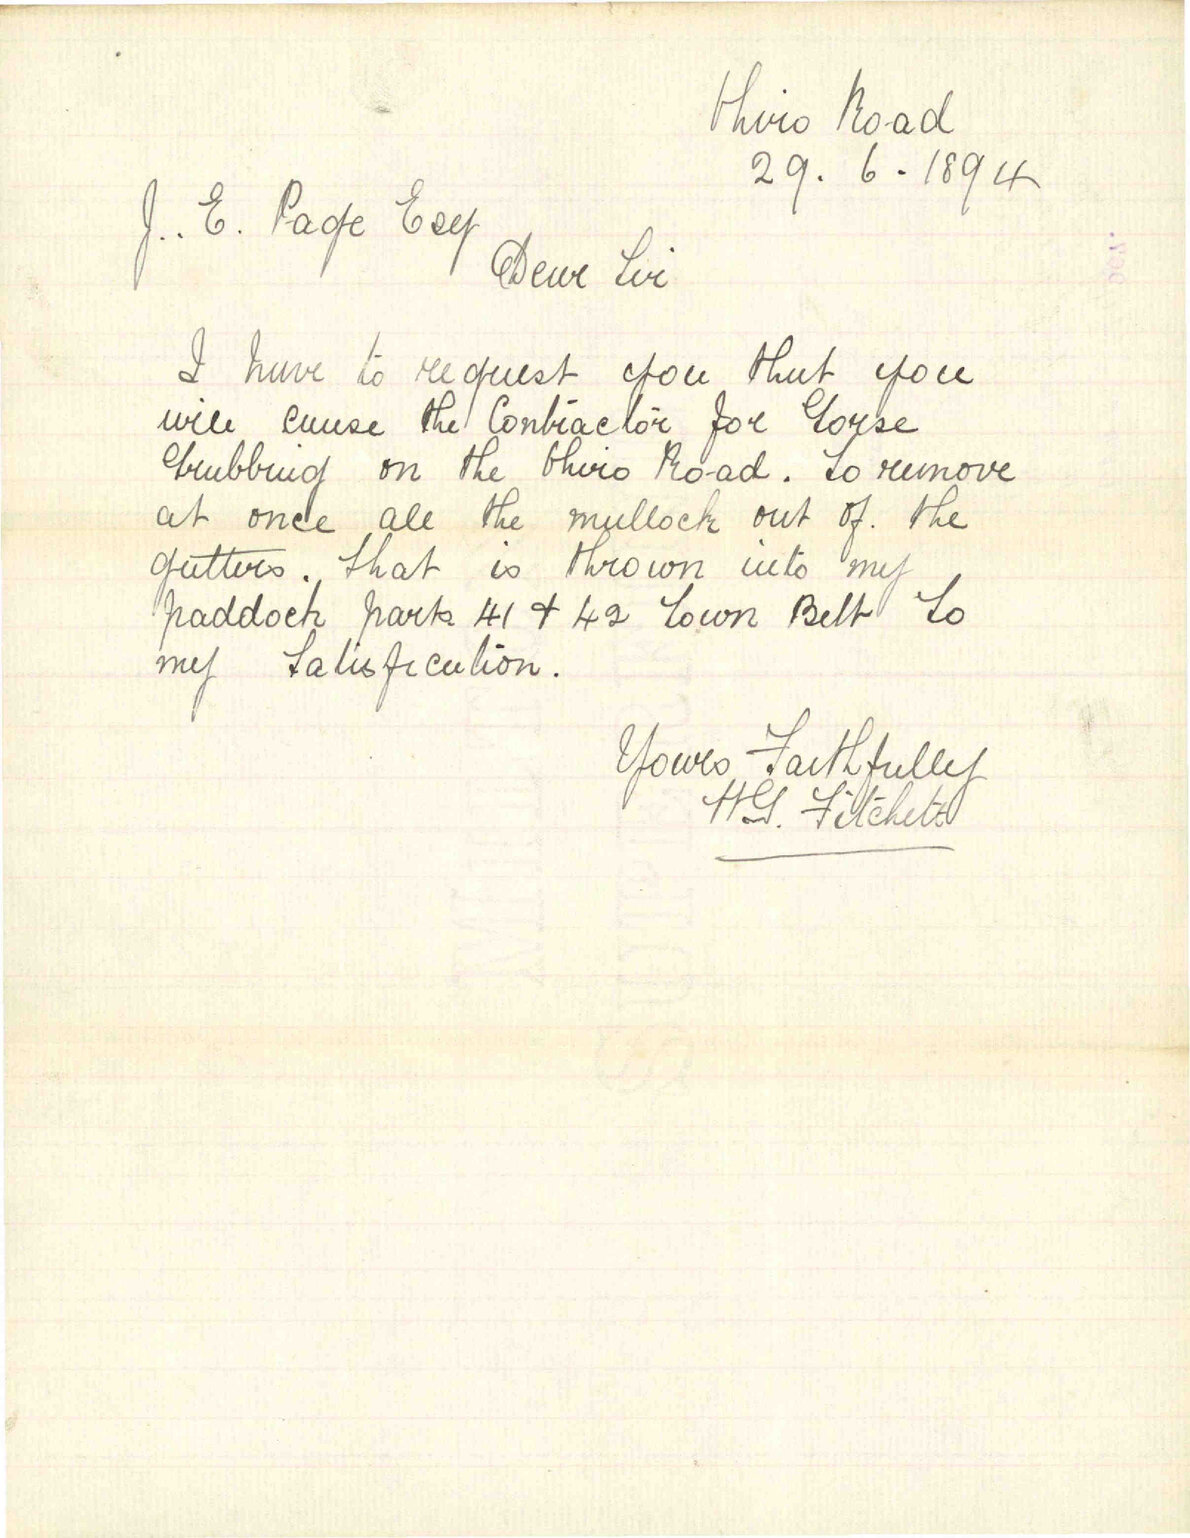 Ohiro Road
29. 6. 1894
J. E. Page Esq
Dear Sir
I have to request you that you
will cause the Contractor for Gorse
Grubbing on the Ohiro Road. to remove
at once all the mullock out of. the
gutters. that is thrown into my
paddock parts 41 & 42 Town Belt to
my Satisfication.
Yours Faithfully
HG. Fitchett